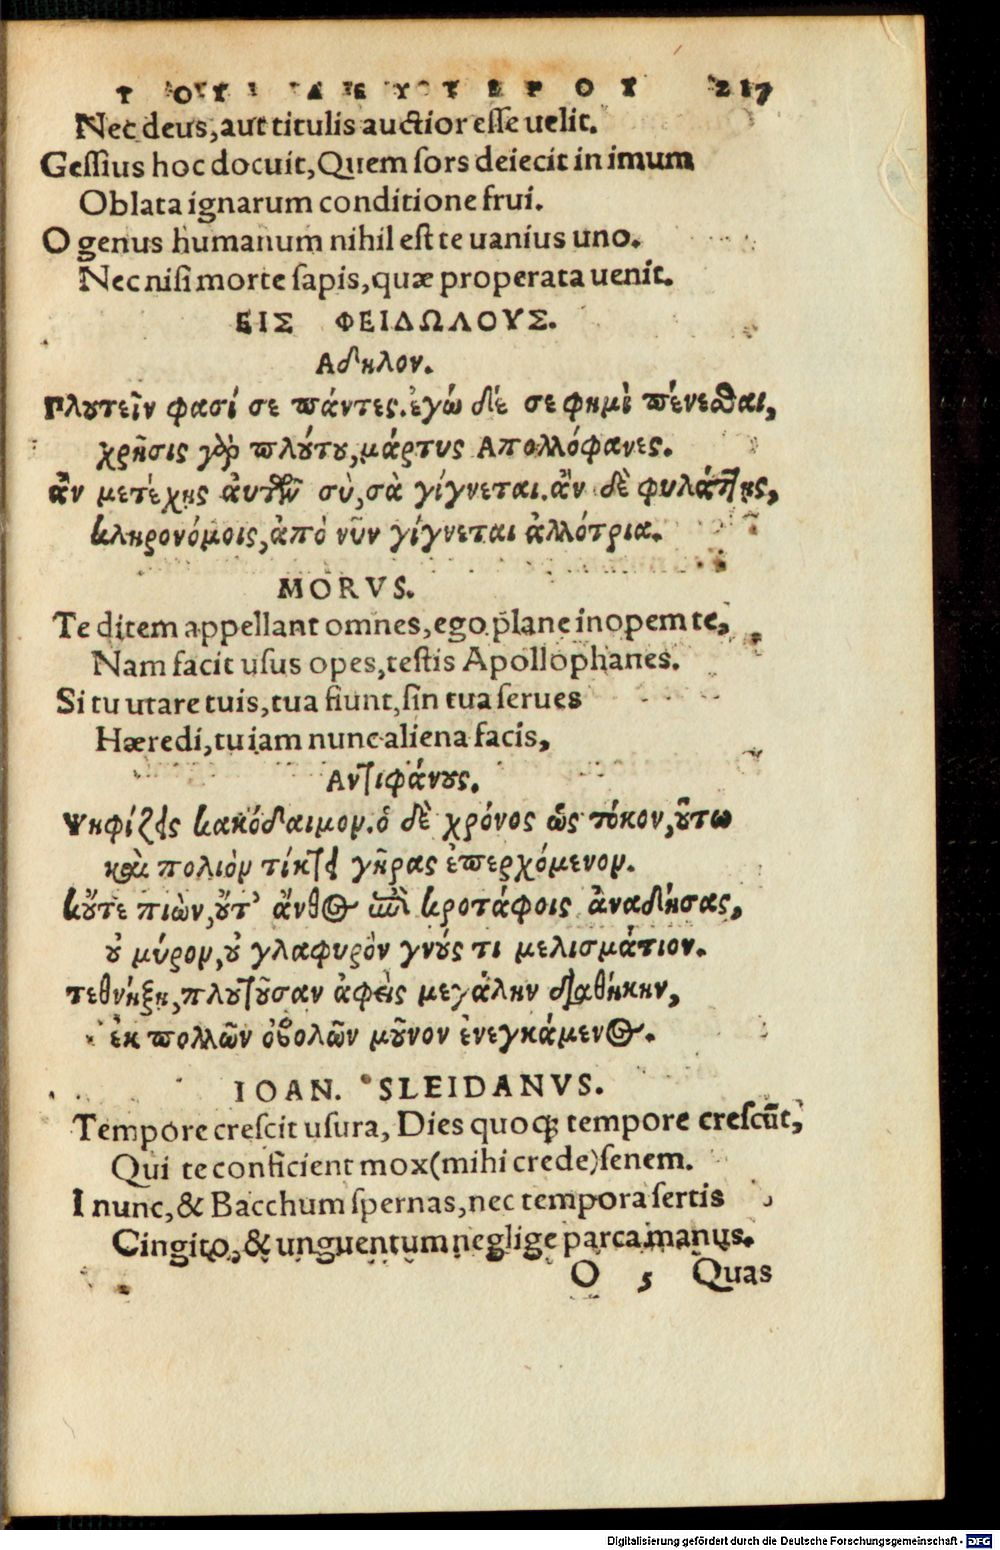 ΤΟΥ ΔΕΥΤΕΡΟΥ 217
Nec deus, aut titulis auctior esse uelit.
Gessius hoc docuit, Quem sors deiecit in imum
Oblata ignarum conditione frui.
O genus humanum nihil est te uanius uno.
Nec nisi morte sapis, quæ properata uenit.
ΕΙΣ ΦΕΙΔΩΛΟΥΣ.
Αδηλον.
Πλουτεῖν φασί σε πάντες. ἐγώ δέ σε φημὶ πένεσθαι,
χρῆσις γὰρ πλούτου, μάρτυς Απολλόφανες.
ἂν μετέχῃς ἀυτῶν σὺ, σὰ γίγνεται. ἂν δὲ φυλάττῃς,
κληρονόμοις, ἀπὸ νῦν γίγνεται ἀλλότρια.
MORVS.
Te ditem appellant omnes, ego plane inopem te,
Nam facit usus opes, testis Apollophanes.
Si tu utare tuis, tua fiunt, sin tua serues
Hæredi, tu iam nunc aliena facis,
Αντιφάνους.
Ψηφίζεις κακόδαιμον. ὁ δὲ χρόνος ὡς τόκον, οὕτω
καὶ πολιὸν τίκτει γῆρας ἐπερχόμενον.
κοὔτε πιὼν, οὔτ' ἄνθος ἐπὶ κροτάφοις ἀναδήσας,
οὐ μύρον, οὐ γλαφυρὸν γνούς τι μελισμάτιον.
τεθνήξῃ, πλουτοῦσαν ἀφεὶς μεγάλην διαθήκην,
ἐκ πολλῶν ὀβολῶν μοῦνον ἐνεγκάμενος.
IOAN. SLEIDANVS.
Tempore crescit usura, Dies quoq; tempore crescūt,
Qui te conficient mox (mihi crede) senem.
I nunc, & Bacchum spernas, nec tempora sertis
Cingito, & unguentum neglige parca manus.
O 5 Quas
Digitalisierung gefördert durch die Deutsche Forschungsgemeinschaft - DFG